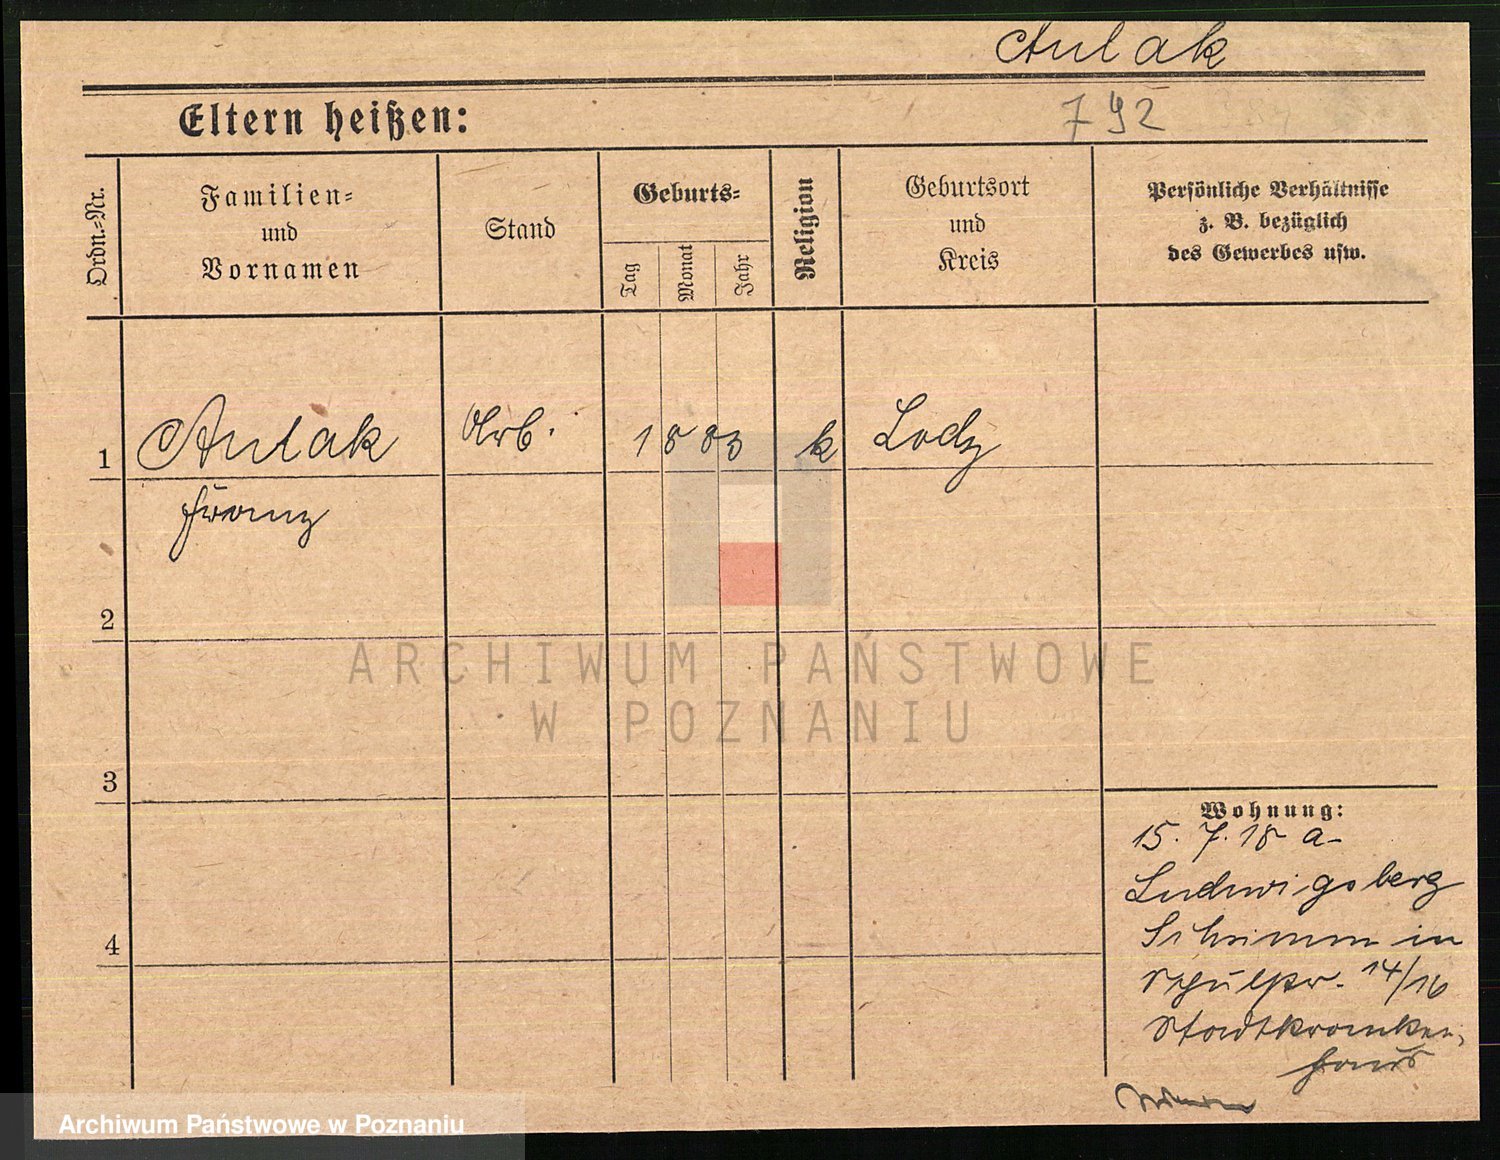 Aulak
Eltern heißen:
792
Ordn.=Nr.
Familien=
und
Vornamen
Stand
Geburts=
Tag
Monat
Jahr
Religion
Geburtsort
und
Kreis
Persönliche Verhältnisse
z. B. bezüglich
des Gewerbes usw.
1
Aulak
Arb.
1883
k
Lodz
Franz
2
ARCHIWUM PAŃSTWOWE
W POZNANIU
3
Wohnung:
15. 7. 18 a-
Ludwigsberg
Schrimm in
Schulstr. 14/16
4
Stadtkranken-
haus
Archiwum Państwowe w Poznaniu